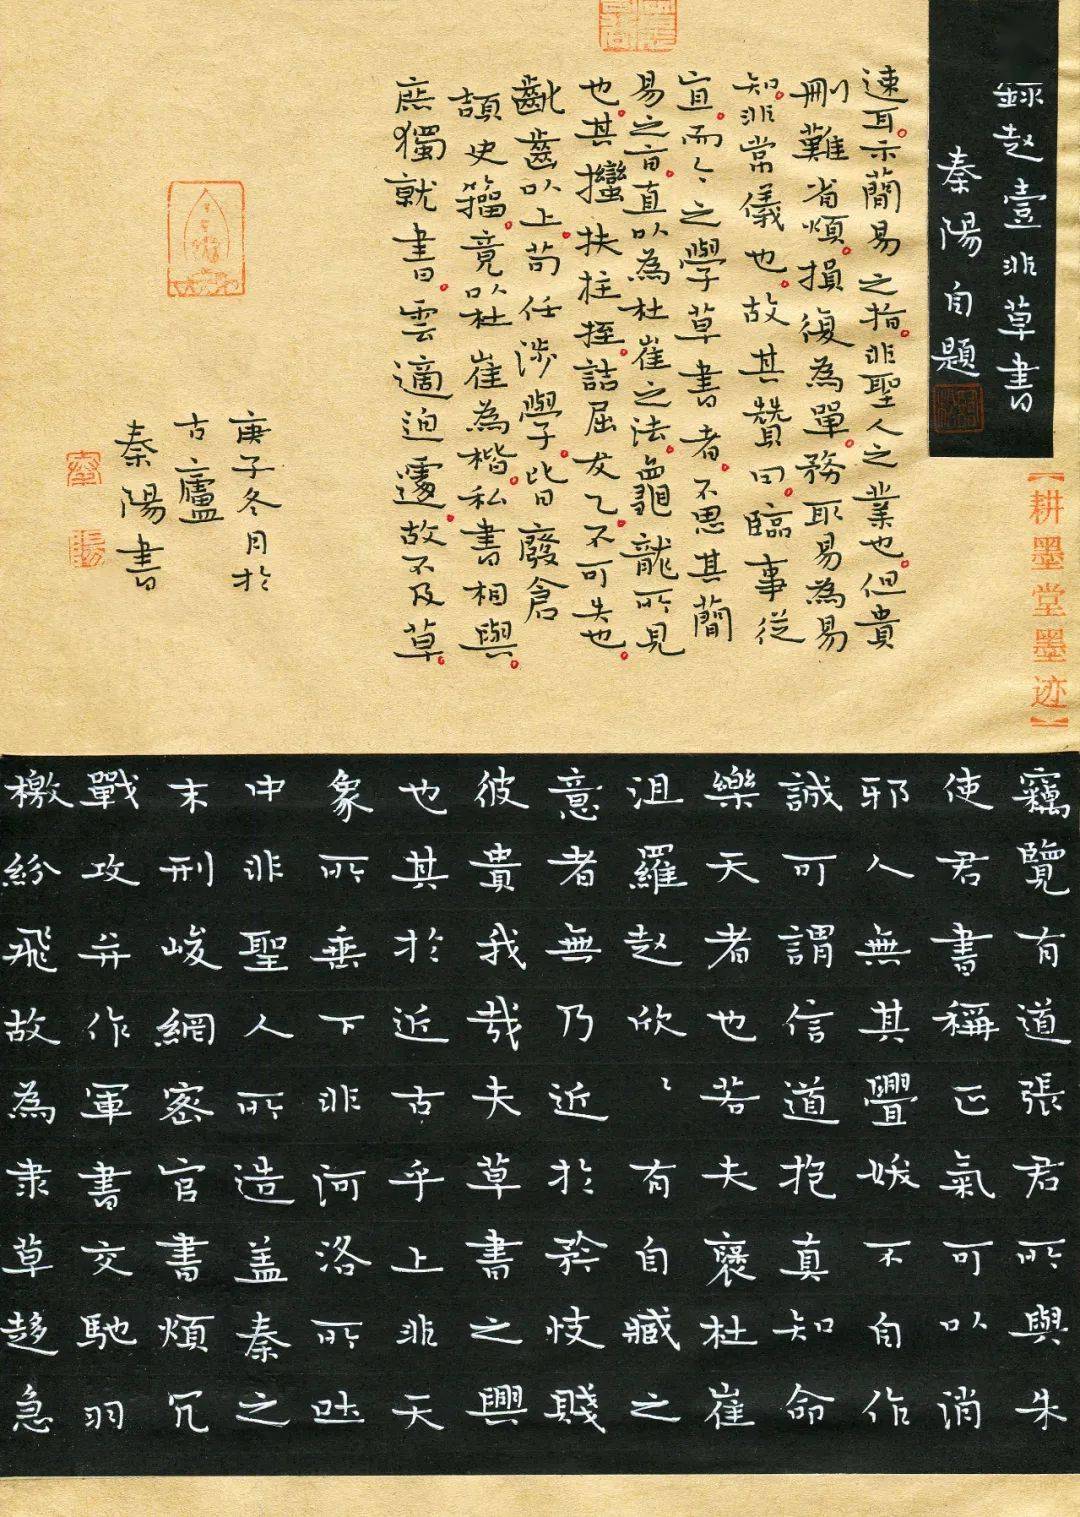 錄赵壹非草書
秦陽自題
【耕墨堂墨迹】
速耳。示簡易之指。非聖人之業也。但貴
刪難省煩。損復為單。務取易為易
知。非常儀也。故其贊曰。臨事從
宜。而今之學草書者。不思其簡
易之旨。直以為杜崔之法。龜龍所見
也。其扶拄挃。詰屈犮乙。不可失也。
齔齒以上。苟任涉學。皆廢倉
頡史籀。竟以杜崔為楷。私書相與。
庶獨就書。雲適迫遽。故不及草。
庚子冬月於
古廬
秦陽書
竊覽有道張君所與朱
使君書稱正氣可以消
邪人無其釁妖不自作
誠可謂信道抱真知命
樂天者也若夫褒杜崔
沮羅赵欣〻有自臧之
意者無乃近於矜忮賤
彼貴我哉夫草書之興
也其於近古乎上非天
象所垂下非河洛所吐
中非聖人所造盖秦之
末刑峻網密官書煩冗
戰攻并作軍書交馳羽
檄紛飛故為隶草趍急